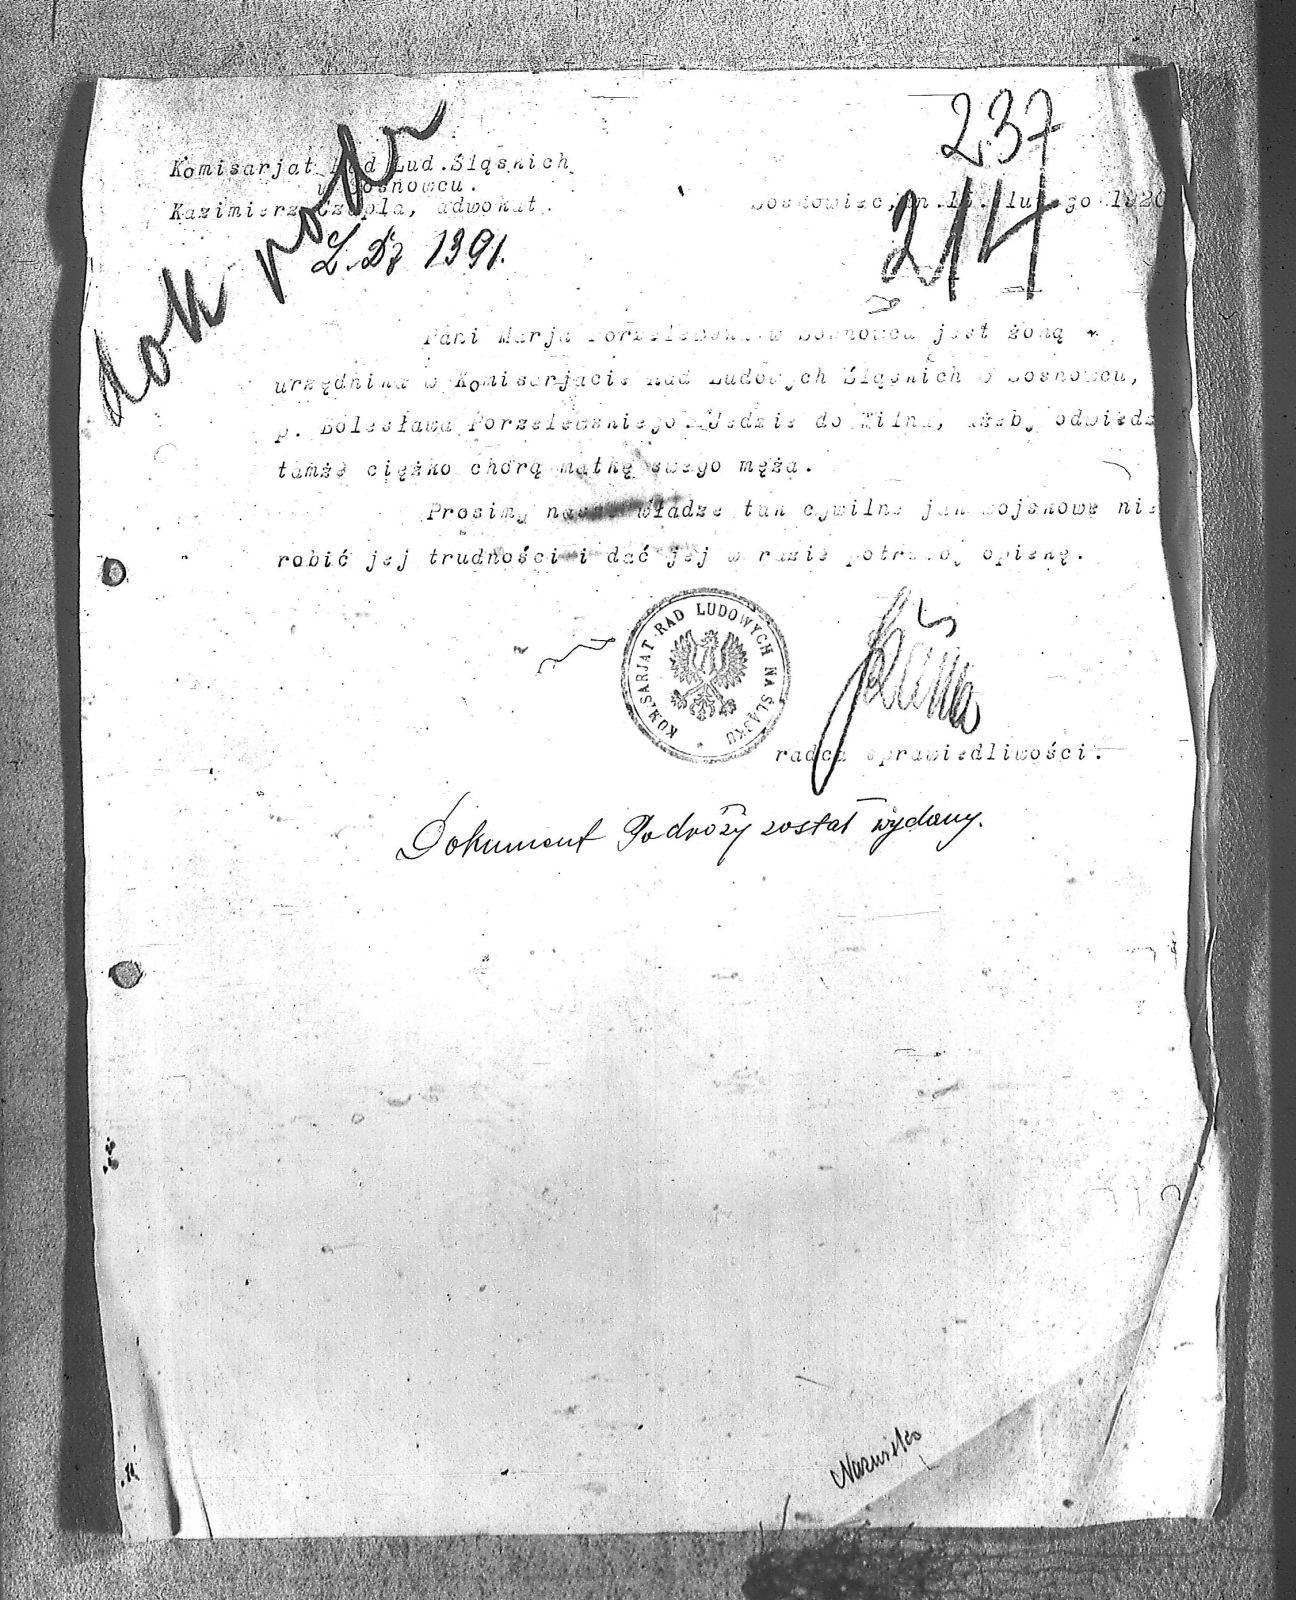 237
214
dok podr
Komisarjat Rad Lud.Śląskich
w Sosnowcu.
Kazimierz Czapla, adwokat.
Sosnowiec, dn. lutego 1920
L. Dz 1391.
Pani Marja Porzelewska w Sosnowcu jest żoną
urzędnika w Komisarjacie Rad Ludowych Śląskich w Sosnowcu,
p. Bolesława Porzelewskiego. Jedzie do Wilna, ażeby odwiedz
tamże ciężko chorą matkę swego męża.
Prosimy nasze władze tak cywilne jak wojskowe nie
robić jej trudności i dać jej w razie potrzeby opiekę.
KOMISARJAT RAD LUDOWYCH NA ŚLĄSKU
radca sprawiedliwości.
Dokument Podróży został wydany.